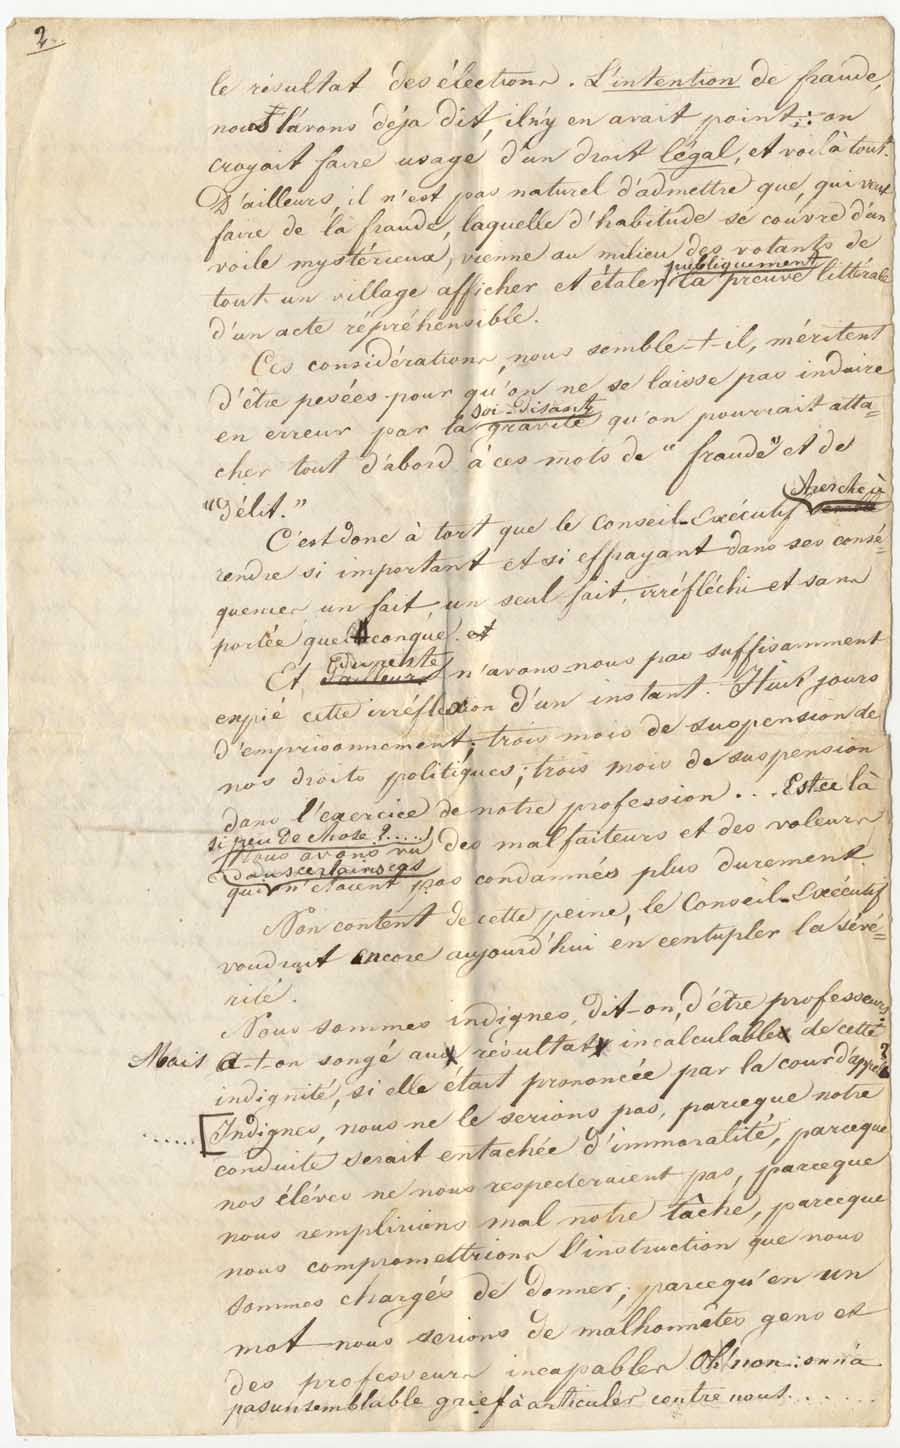 2
le résultat des élections. L'intention de fraude,
nous l'avons déja dit, il n'y en avait point: on
croyait faire usage d'un droit légal, et voilà tout.
D'ailleurs, il n'est pas naturel d'admettre que, qui veut
faire de la fraude, laquelle d'habitude se couvre d'un
voile mystérieux, vienne au milieu des votants de
publiquement
tout un village afficher et étaler la preuve littérale
d'un acte répréhensible.
Ces considérations, nous semble-t-il, méritent
d'être pesées pour qu'on ne se laisse pas induire
soi-disant
en erreur par la gravité qu'on pourrait atta=
cher tout d'abord à ces mots de "fraude" et de
"délit."
cherche à
C'est donc à tort que le Conseil-Exécutif semble
rendre si important et si effrayant dans ses consé=
quences un fait, un seul fait, irréfléchi et sans
portée quelconque. et
Du reste
Et, d'ailleurs, n'avons-nous pas suffisamment
expié cette irréflexion d'un instant. Huit jours
d'emprisonnement; trois mois de suspension de
nos droits politiques; trois mois de suspension
dans l'exercice de notre profession... Est ce là
si peu de chose?....
Nous avons vu des malfaiteurs et des voleurs
dans certains cas
qui n'étaient pas condamnés plus durement.
Non content de cette peine, le Conseil-Exécutif
voudrait encore aujourd'hui en centupler la sévé=
rité.
Nous sommes indignes, dit-on, d'être professeurs.
Mais a-t-on songé aux résultats incalculables de cette
indignité, si elle était prononcée par la cour d'appel?
...... [Indignes, nous ne le serions pas, parceque notre
conduite serait entachée d'immoralité, parceque
nos élèves ne nous respecteraient pas, parceque
nous remplirions mal notre tâche, parceque
nous compromettrions l'instruction que nous
sommes chargés de donner; parcequ'en un
mot nous serions de malhonnêtes gens et
des professeurs incapables. Oh! non: on n'a
pas un semblable grief à articuler contre nous......